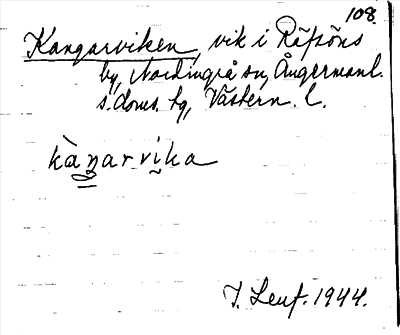 108
Kangarviken, vik i Räfsöns
by, Nordingrå sn, Ångermanl.
s. doms. tg, Västern. l.
kàŋarvika
J. Leuf. 1944.